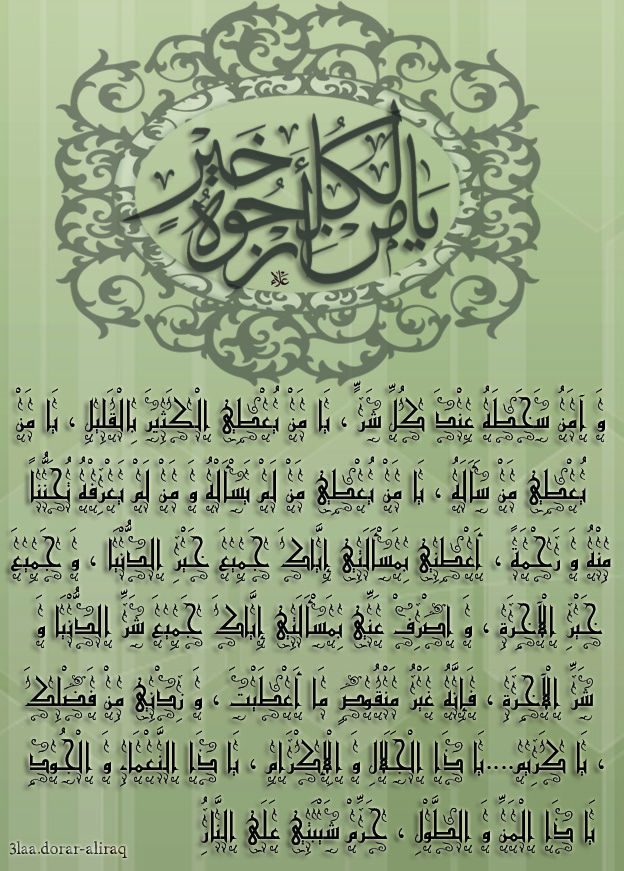 يَا مَنْ أَرْجُوهُ لِكُلِّ خَيْرٍ
علاء
وَ آمَنُ سَخَطَهُ عِنْدَ كُلِّ شَرٍّ ، يَا مَنْ يُعْطِي الْكَثِيرَ بِالْقَلِيلِ ، يَا مَنْ
يُعْطِي مَنْ سَأَلَهُ ، يَا مَنْ يُعْطِي مَنْ لَمْ يَسْأَلْهُ وَ مَنْ لَمْ يَعْرِفْهُ تُحَنُّناً
مِنْهُ وَ رَحْمَةً ، أَعْطِنِي بِمَسْأَلَتِي إِيَّاكَ جَمِيعَ خَيْرِ الدُّنْيَا ، وَ جَمِيعَ
خَيْرِ الْآخِرَةِ ، وَ اصْرِفْ عَنِّي بِمَسْأَلَتِي إِيَّاكَ جَمِيعَ شَرِّ الدُّنْيَا وَ
شَرِّ الْآخِرَةِ ، فَإِنَّهُ غَيْرُ مَنْقُوصٍ ما أَعْطَيْتَ ، وَ زِدْنِي مِنْ فَضْلِكَ
، يَا كَرِيمُ....يَا ذَا الْجَلَالِ وَ الْإِكْرَامِ ، يَا ذَا النَّعْمَاءِ وَ الْجُودِ
يَا ذَا الْمَنِّ وَ الطَّوْلِ ، حَرِّمْ شَيْبَتِي عَلَى النَّارُ
3laa.dorar-aliraq